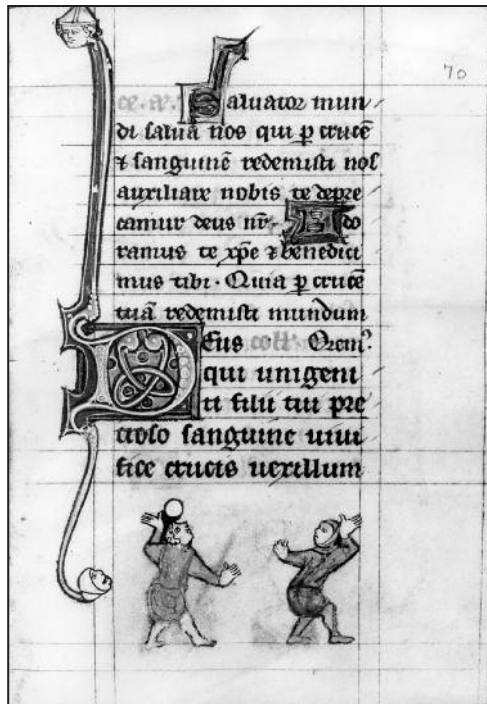 70
ce. a. Saluator mun
di salua nos qui p crucē
⁊ sanguinē redemisti nos
auxiliare nobis te depre
camur deus nr̄. Ado
ramus te xp̄e ⁊ benedici
mus tibi. Quia p crucē
tuā redemisti mundum
Deus coll. Orem⁹.
qui unigeni
ti filii tui pre
cioso sanguine uiui
fice crucis uexillum